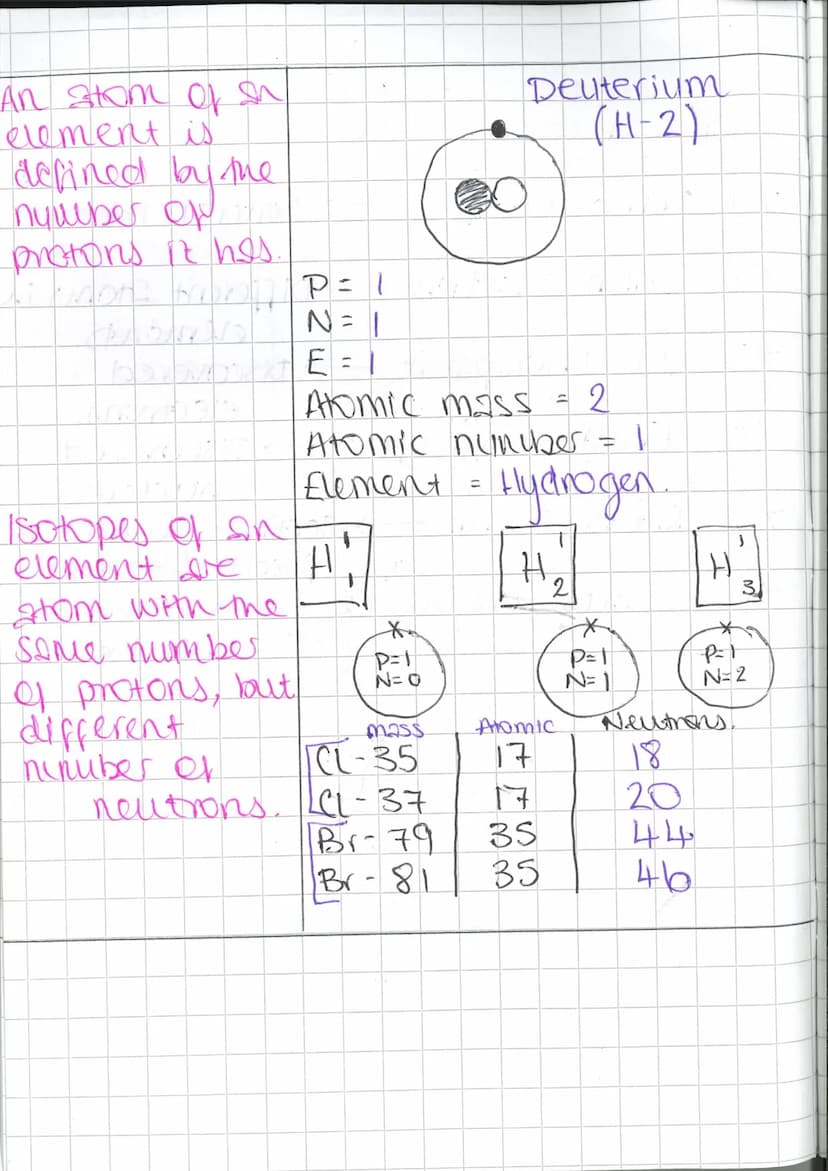 An atom of an
element is
defined by the
number of
protons it has.
Deuterium
(H-2)
P = 1
N = 1
E = 1
Atomic mass = 2
Atomic number = 1
Element = Hydrogen.
Isotopes of an
element are
atom with the
same number
of protons, but
different
number of
neutrons.
H 1
1
H 1
2
H 1
3
P=1
N=0
P=1
N=1
P=1
N=2
mass Atomic Neutrons.
Cl-35 17 18
Cl-37 17 20
Br-79 35 44
Br-81 35 46